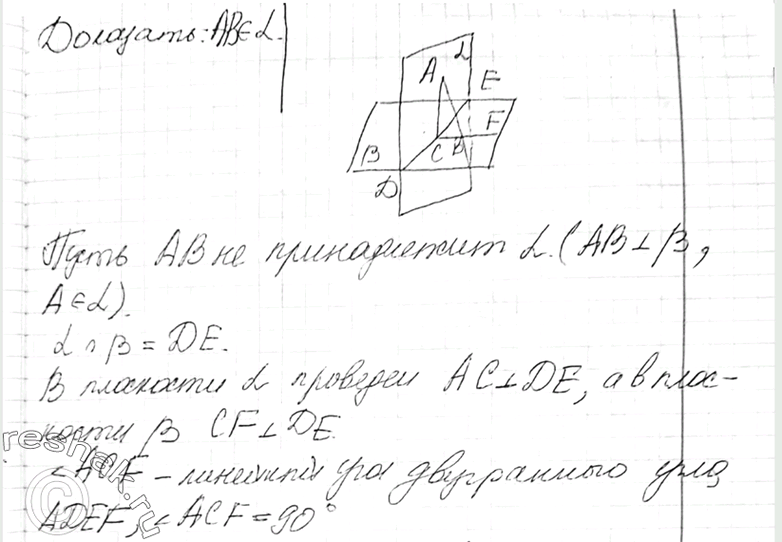 Доказать: AB∈α.
A α E
F
β C B
D
Пусть AB не принадлежит α. (AB⊥β,
A∈α).
α∩β = DE.
В плоскости α проведем AC⊥DE, а в плос-
кости β CF⊥DE.
∠ACF - линейный угол двугранного угла
ADEF, ∠ACF = 90°
reshak.ru
©